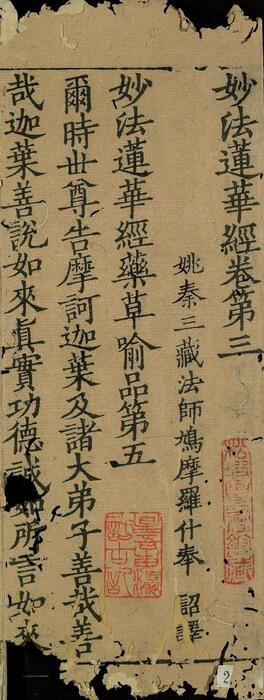 妙法蓮華經卷第三
姚秦三藏法師鳩摩羅什奉 詔譯
妙法蓮華經藥草喻品第五
爾時世尊告摩訶迦葉及諸大弟子善哉善
哉迦葉善說如來真實功德誠如所言如來
2